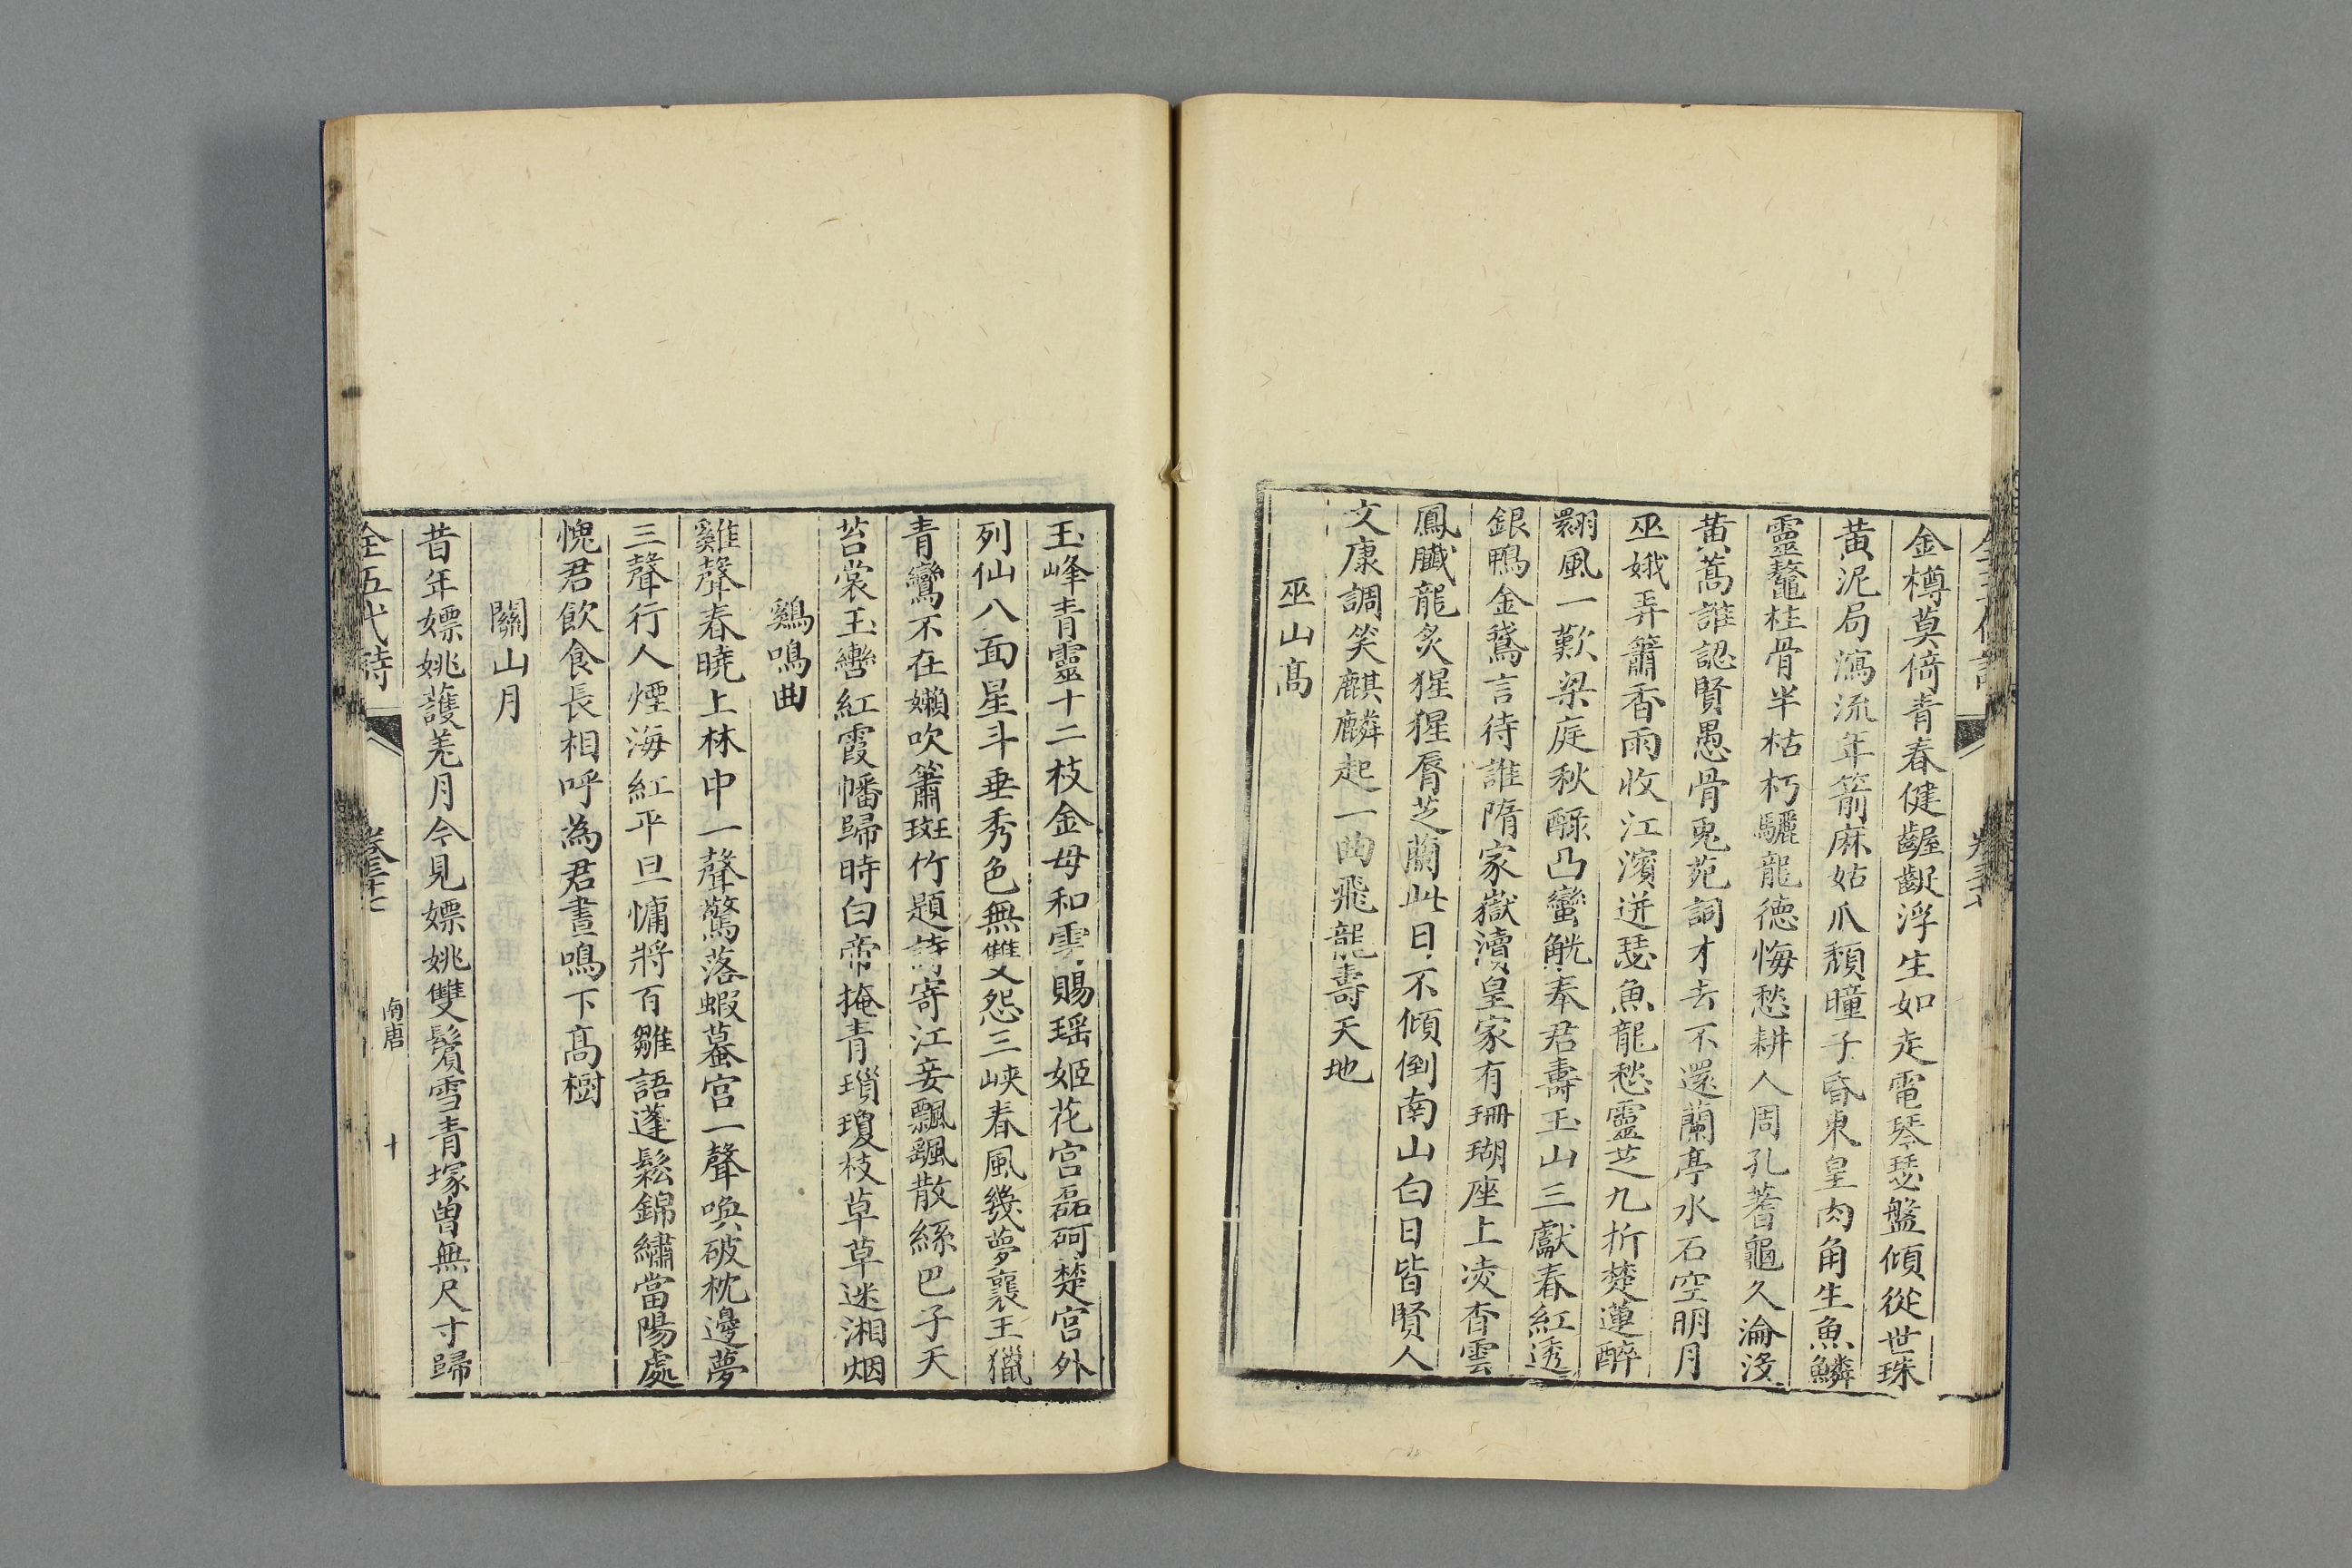 金樽莫倚青春健齷齪浮生如走電琴瑟盤傾從世珠
黃泥局瀉流年箭麻姑爪頹瞳子昏東皇肉角生魚鱗
靈鼇柱骨半枯朽驪龍德悔愁耕人周孔蓍龜久淪沒
黃蒿誰認賢愚骨兎苑詞才去不還蘭亭水石空明月
巫娥弄簫香雨收江濱迸瑟魚龍愁靈芝九折楚蓮醉
翾風一歎梁庭秋醁凸蠻觥奉君壽玉山三獻春紅透
銀鴨金鵞言待誰隋家嶽瀆皇家有珊瑚座上凌香雲
鳳膱龍炙猩猩脣芝蘭此日不傾倒南山白日皆賢人
文康調笑麒麟起一曲飛龍壽天地
巫山髙
玉峰青靈十二枝金母和雲賜瑶姬花宫磊砢楚宫外
列仙八面星斗垂秀色無雙怨三峡春風幾夢襄王獵
青鸞不在嬾吹簫斑竹題詩寄江妾飄颻散絲巴子天
苔裳玉轡紅霞幡歸時白帝掩青瑣瓊枝草草迷湘烟
鷄鳴曲
雞聲春曉上林中一聲驚落蝦蟇宫一聲喚破枕邊夢
三聲行人煙海紅平旦慵將百雛語蓬鬆錦繡當陽處
愧君飲食長相呼為君晝鳴下髙樹
關山月
昔年嫖姚護羌月今見嫖姚雙鬢雪青塚曽無尺寸歸
全五代詩
卷三十七
南唐
十